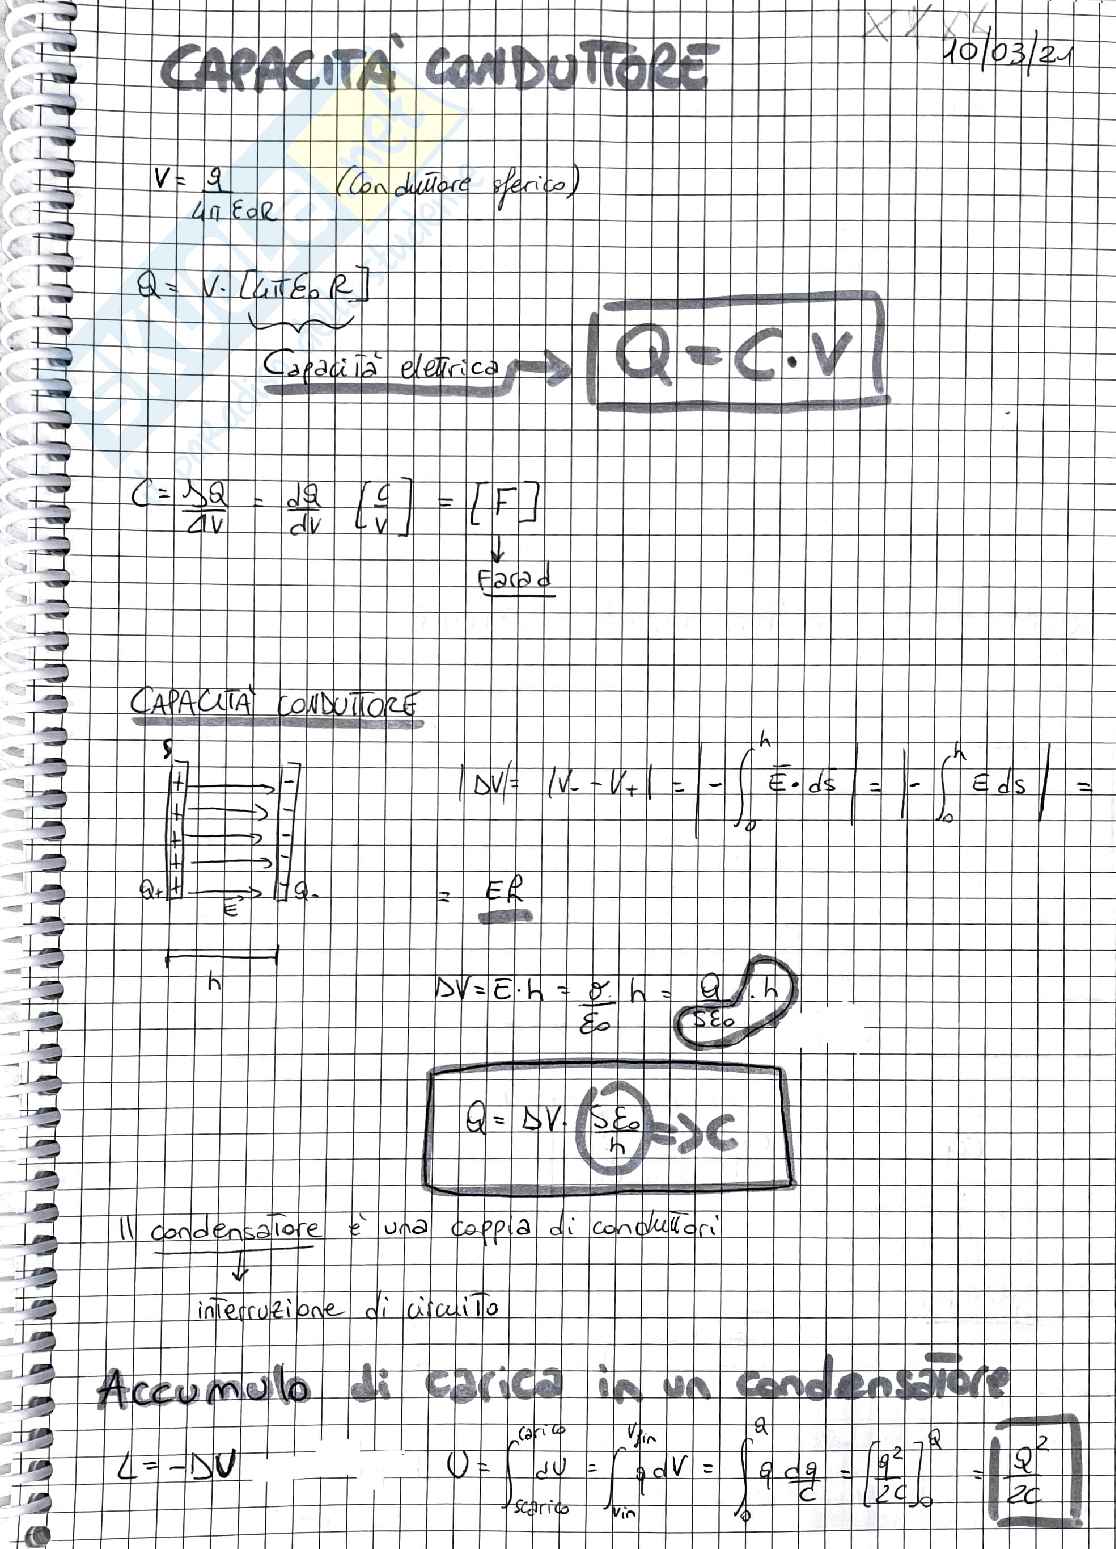 10/03/21
CAPACITÀ CONDUTTORE
V = q / 4π ε0 R (Conduttore sferico)
Q = V · [4π ε0 R]
Capacità elettrica → Q = C · V
C = ΔQ/ΔV = dQ/dV [C/V] = [F]
Farad
CAPACITÀ CONDUTTORE
S
|ΔV| = |V- - V+| = |-∫₀ʰ E · ds| = |-∫₀ʰ E ds| =
Q+ E Q-
= Eh
h
ΔV = E · h = σ/ε0 h = Q/Sε0 · h
Q = ΔV · Sε0/h => C
Il condensatore è una coppia di conduttori
interruzione di circuito
Accumulo di carica in un condensatore
L = -ΔU U = ∫ scarico carico dU = ∫ Vin Vfin q dV = ∫₀Q q dq/C = [q²/2C]₀Q = Q²/2C